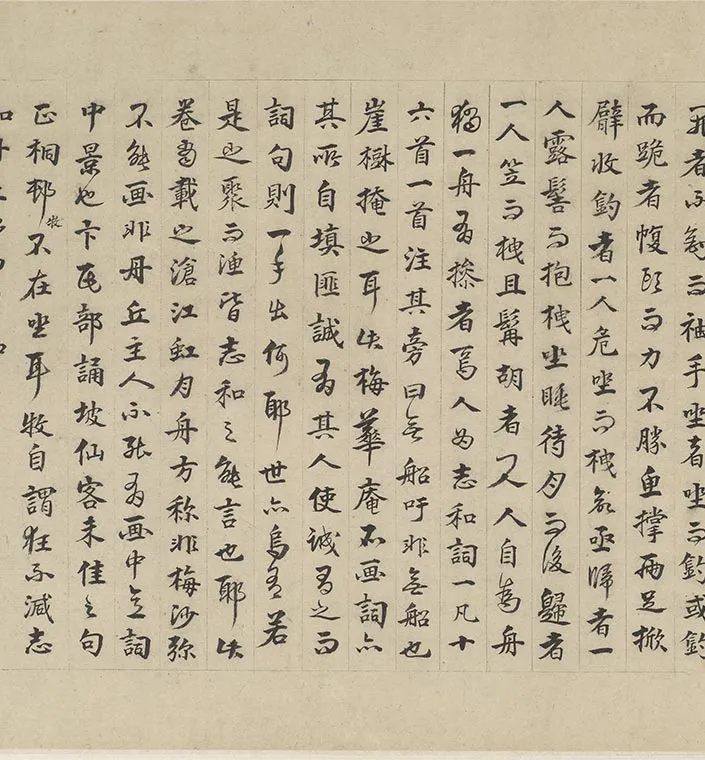 者而急而袖手坐者坐而釣或釣
而跪者幞頭而力不勝魚撑兩足掀
髀收釣者一人危坐而栧若亟歸者一
人露髻而抱栧坐睡待月而後歸者
一人笠而栧且髯胡者又人人自為舟
獨一舟有操者焉人為志和詞一凡十
六首一首注其旁曰無船吁非無船也
崖樹掩之耳此梅華庵不画詞亦
其所自填匪誠有其人使誠有之而
詞句則一手出何耶世亦烏有若
是之聚而漁皆志和之能言也耶此
卷當載之滄江虹月舟方稱非梅沙弥
不能画非丹丘主人不張有画中無詞
中景也卞瓦部誦坡仙客未佳之句
正桐邨牧不在坐耳牧自謂狂不減志
和